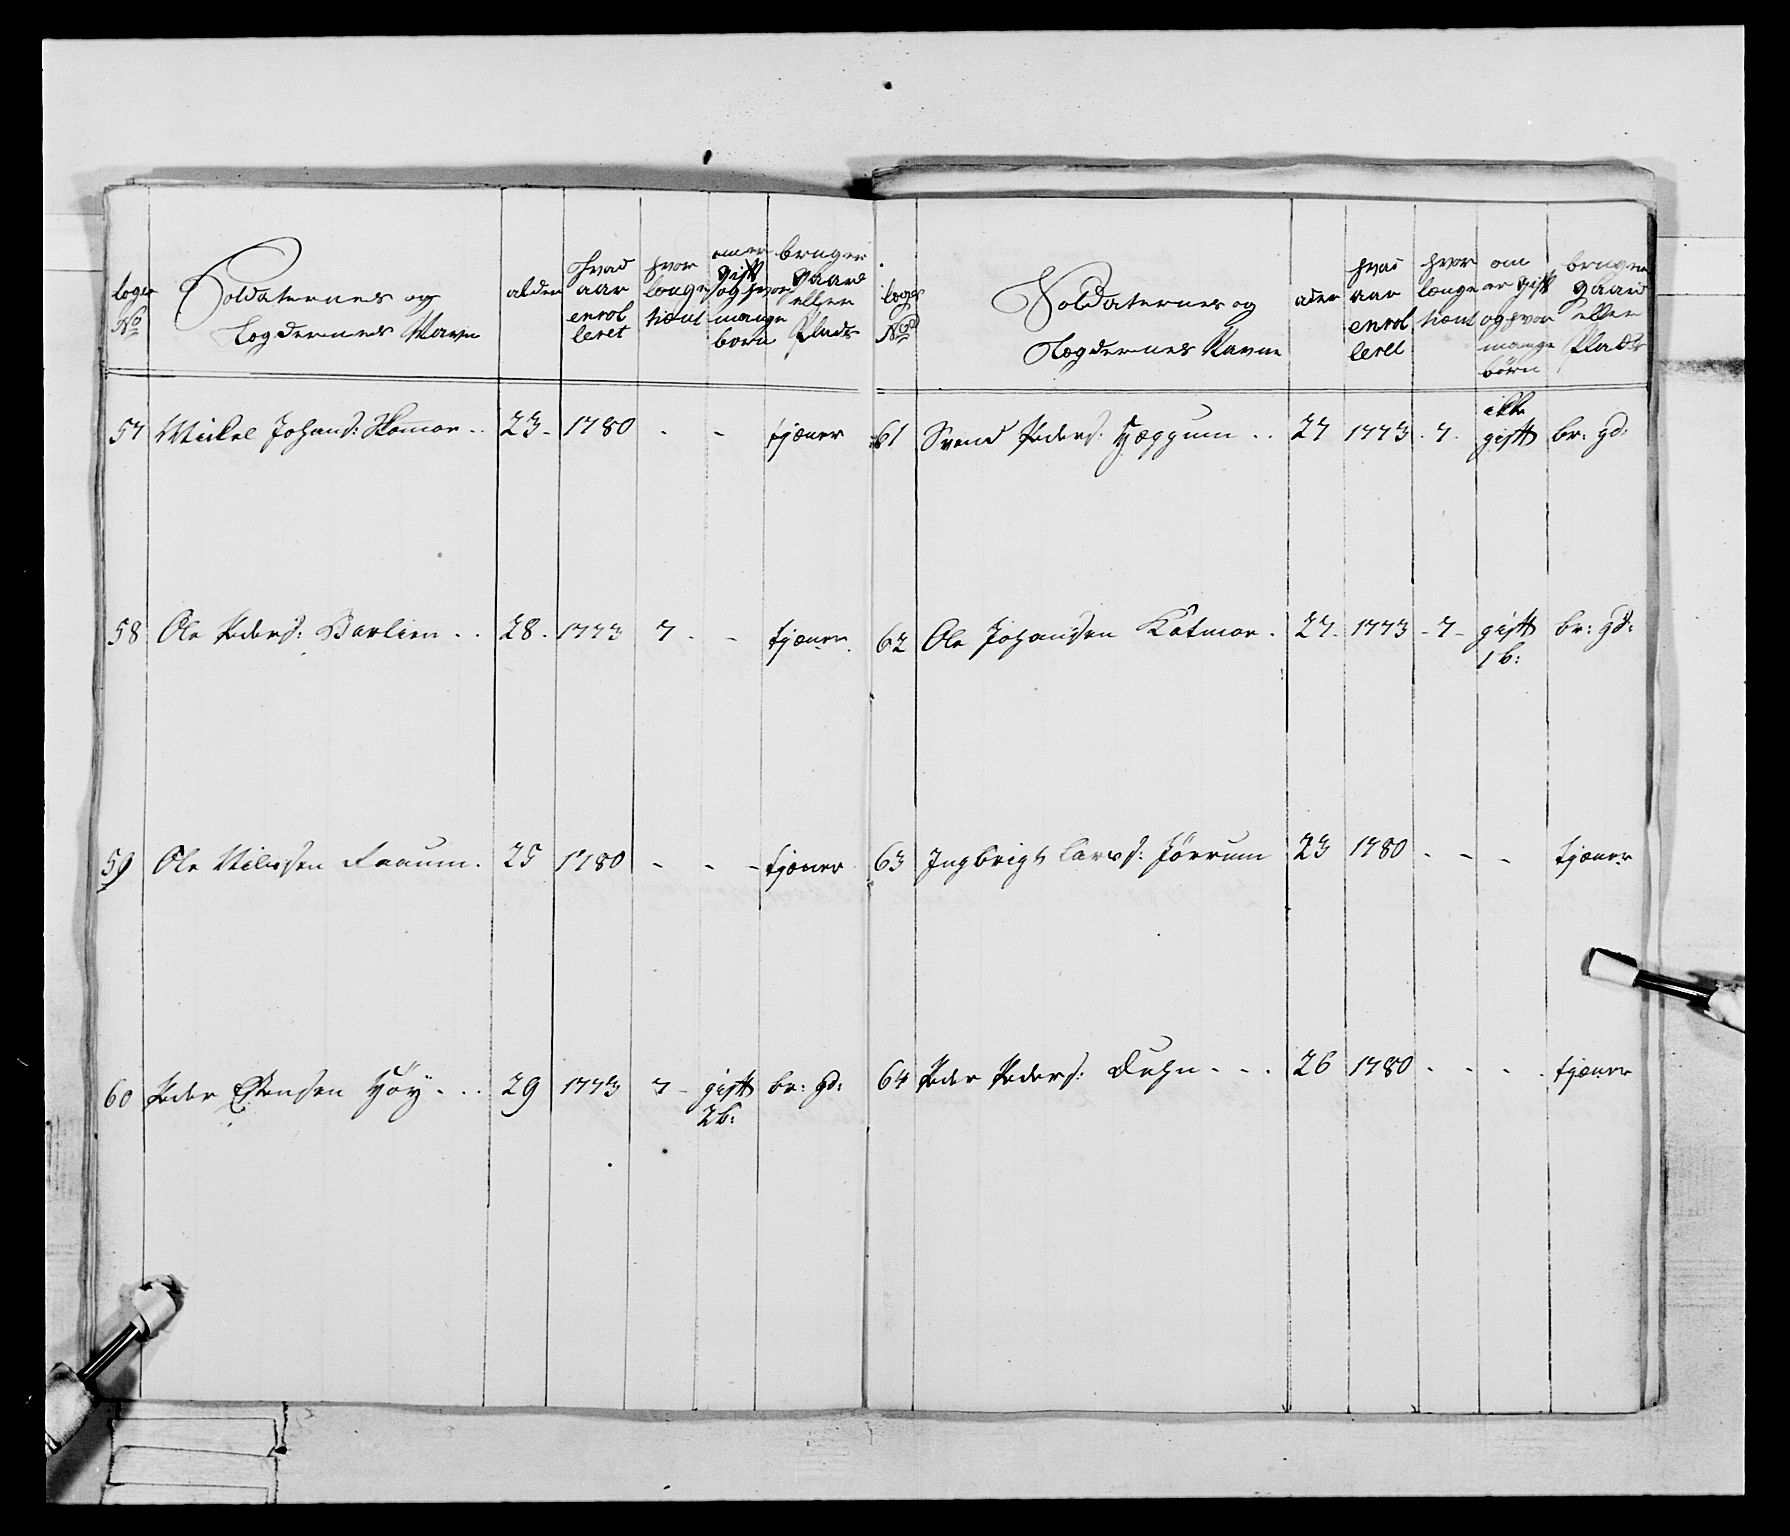 Lægs No
Soldaternes og
Lægdernes Navn
alder
hvad aar enrolleret
hvor længe tient
om er gift og hvor mange børn
bruger gaard eller Plads
57 Mickel Johans: Hommor .. 23 - 1780 . - tjæner
58 Ole Peders: Barlien .. 28 . 1773 7 . - tjæner
59 Ole Nilssen Faaum . 25 1780 - - - tjæner
60 Peder Estensen Höÿ ... 29 1773 7 - gift br: gd:
2 b:
Lægs No
Soldaternes og
Lægdernes Navne
alder
hvad aar enrolleret
hvor længe tient
om er gift og hvor mange børn
bruger gaard eller Plads
ikke
61 Svend Peders: Hæggum .. 27 1773 . 7 . gift br: gd:
62 Ole Johansen Katmoe . 27 . 1773 - 7 - gift br: gd:
1 b:
63 Ingbrigt Lars: Jörrum 23 1780 - - - tjæner
64 Peder Peders: Duhn - - - 26 1780 - - - - tjæner